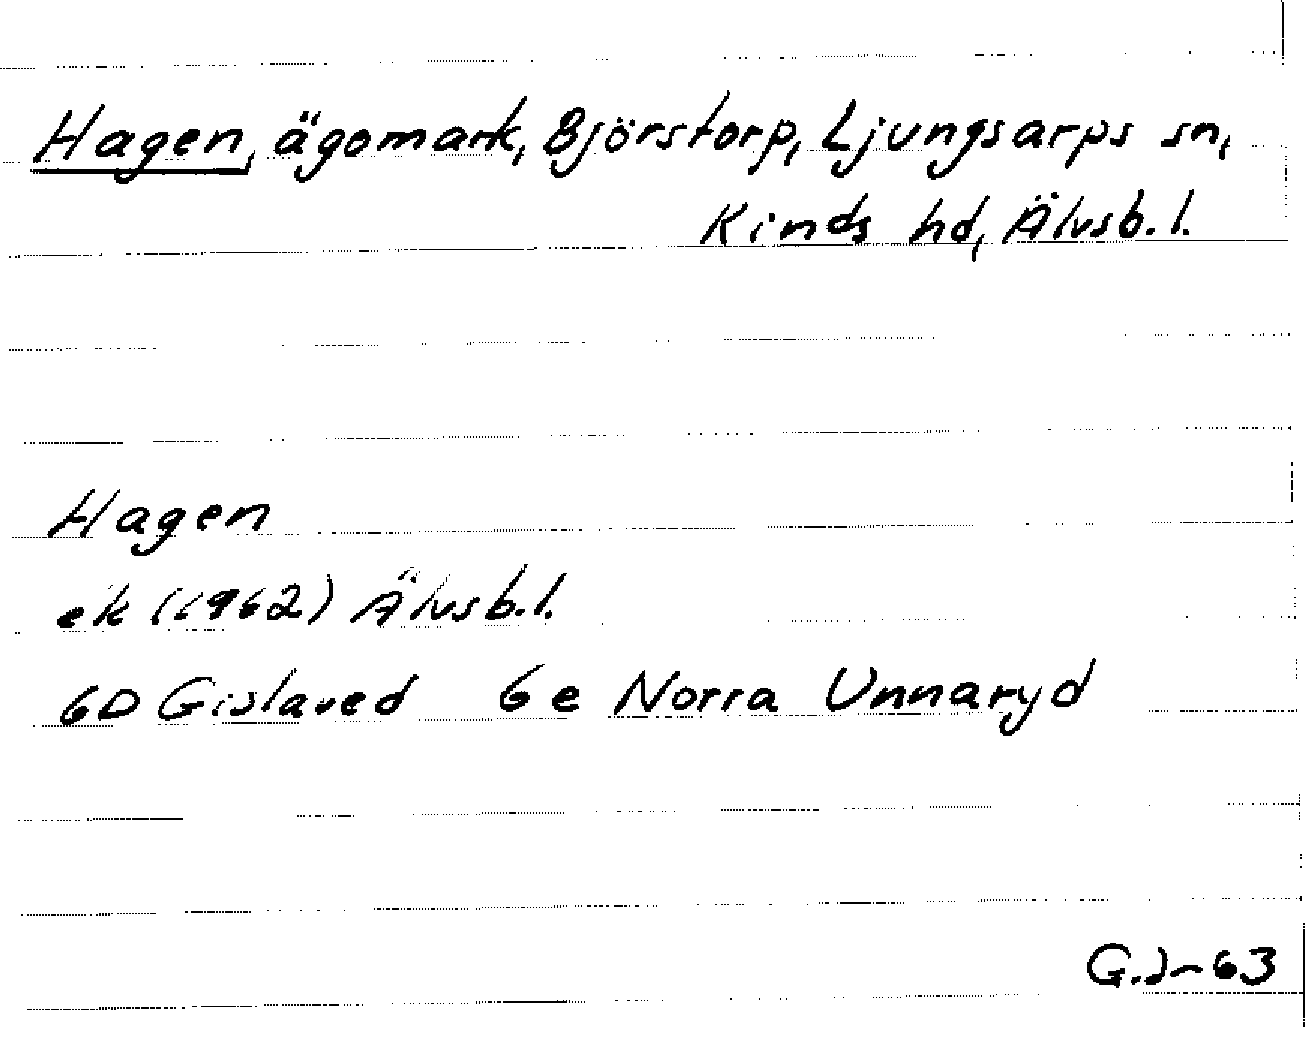 Hagen, ägomark, Björstorp, Ljungsarps sn,
Kinds hd, Älvsb. l.
Hagen
ek (1962) Älvsb. l.
6D Gislaved 6e Norra Unnaryd
G.J-63